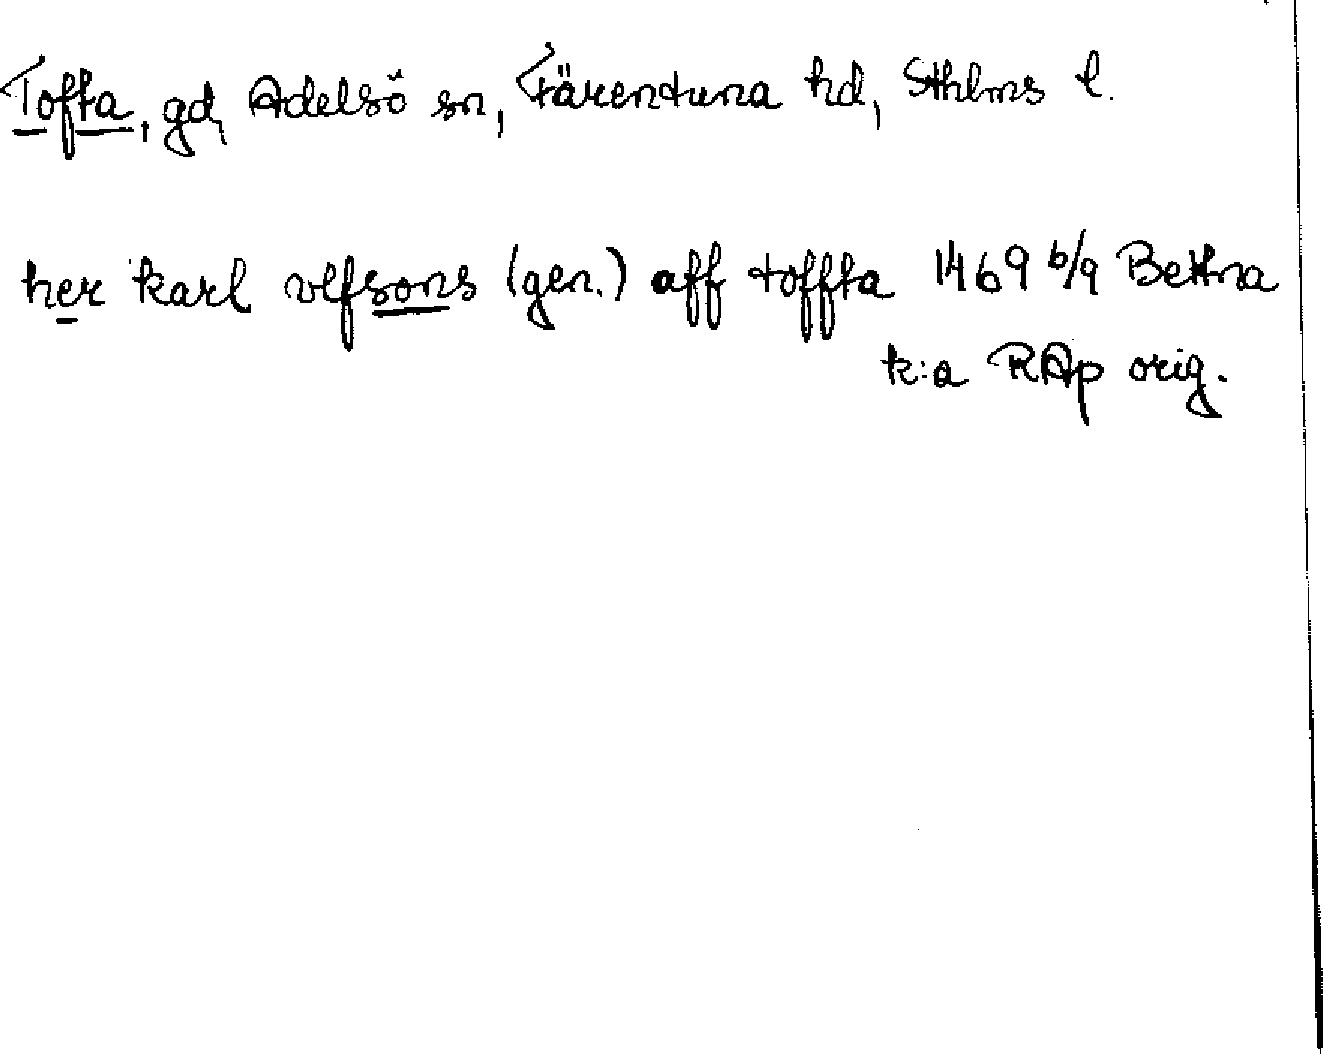 Tofta, gd, Adelsö sn, Färentuna hd, Sthlms l.
her karl vlfsons (gen.) aff toffta 1469 6/9 Bettna
k:a RAp orig.